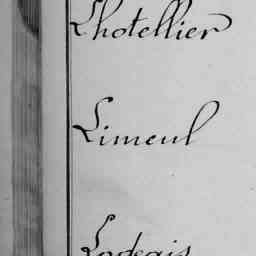 Lhotellier
Limeul
Lodeais